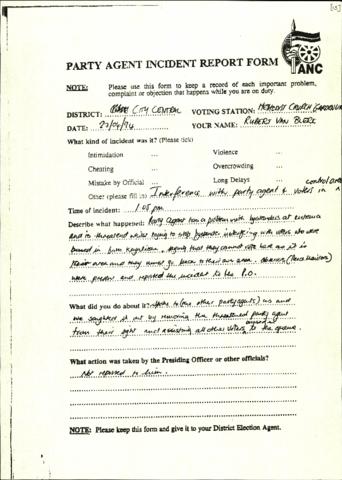 [15]
ANC
PARTY AGENT INCIDENT REPORT FORM
NOTE: Please use this form to keep a record of each important problem,
complaint or objection that happens while you are on duty.
DISTRICT: CITY CENTRAL VOTING STATION: METHODIST CHURCH
DATE: 27/04/94 YOUR NAME: VAN BLERK
What kind of incident was it? (Please tick)
Intimidation ... Violence ...
Cheating ... Overcrowding ...
Mistake by Official ... Long Delays ...
control area
Other (please fill in) Interference with party agent & voters in ^
Time of incident: 1.05 pm
Describe what happened: Party Agent has a problem with bystanders at entrance
and is threatened whilst trying to stop bystander interfering with voters who were
and they cannot vote here as it is
area and they must go back to their own area.
were present and reported the incident to the P.O.
What did you do about it? Spoke to (one other party agent) us and
we it out by removing the threatened party agent
from their sight and all other voters to the queue.
What action was taken by the Presiding Officer or other officials?
Not reported to him.
NOTE: Please keep this form and give it to your District Election Agent.